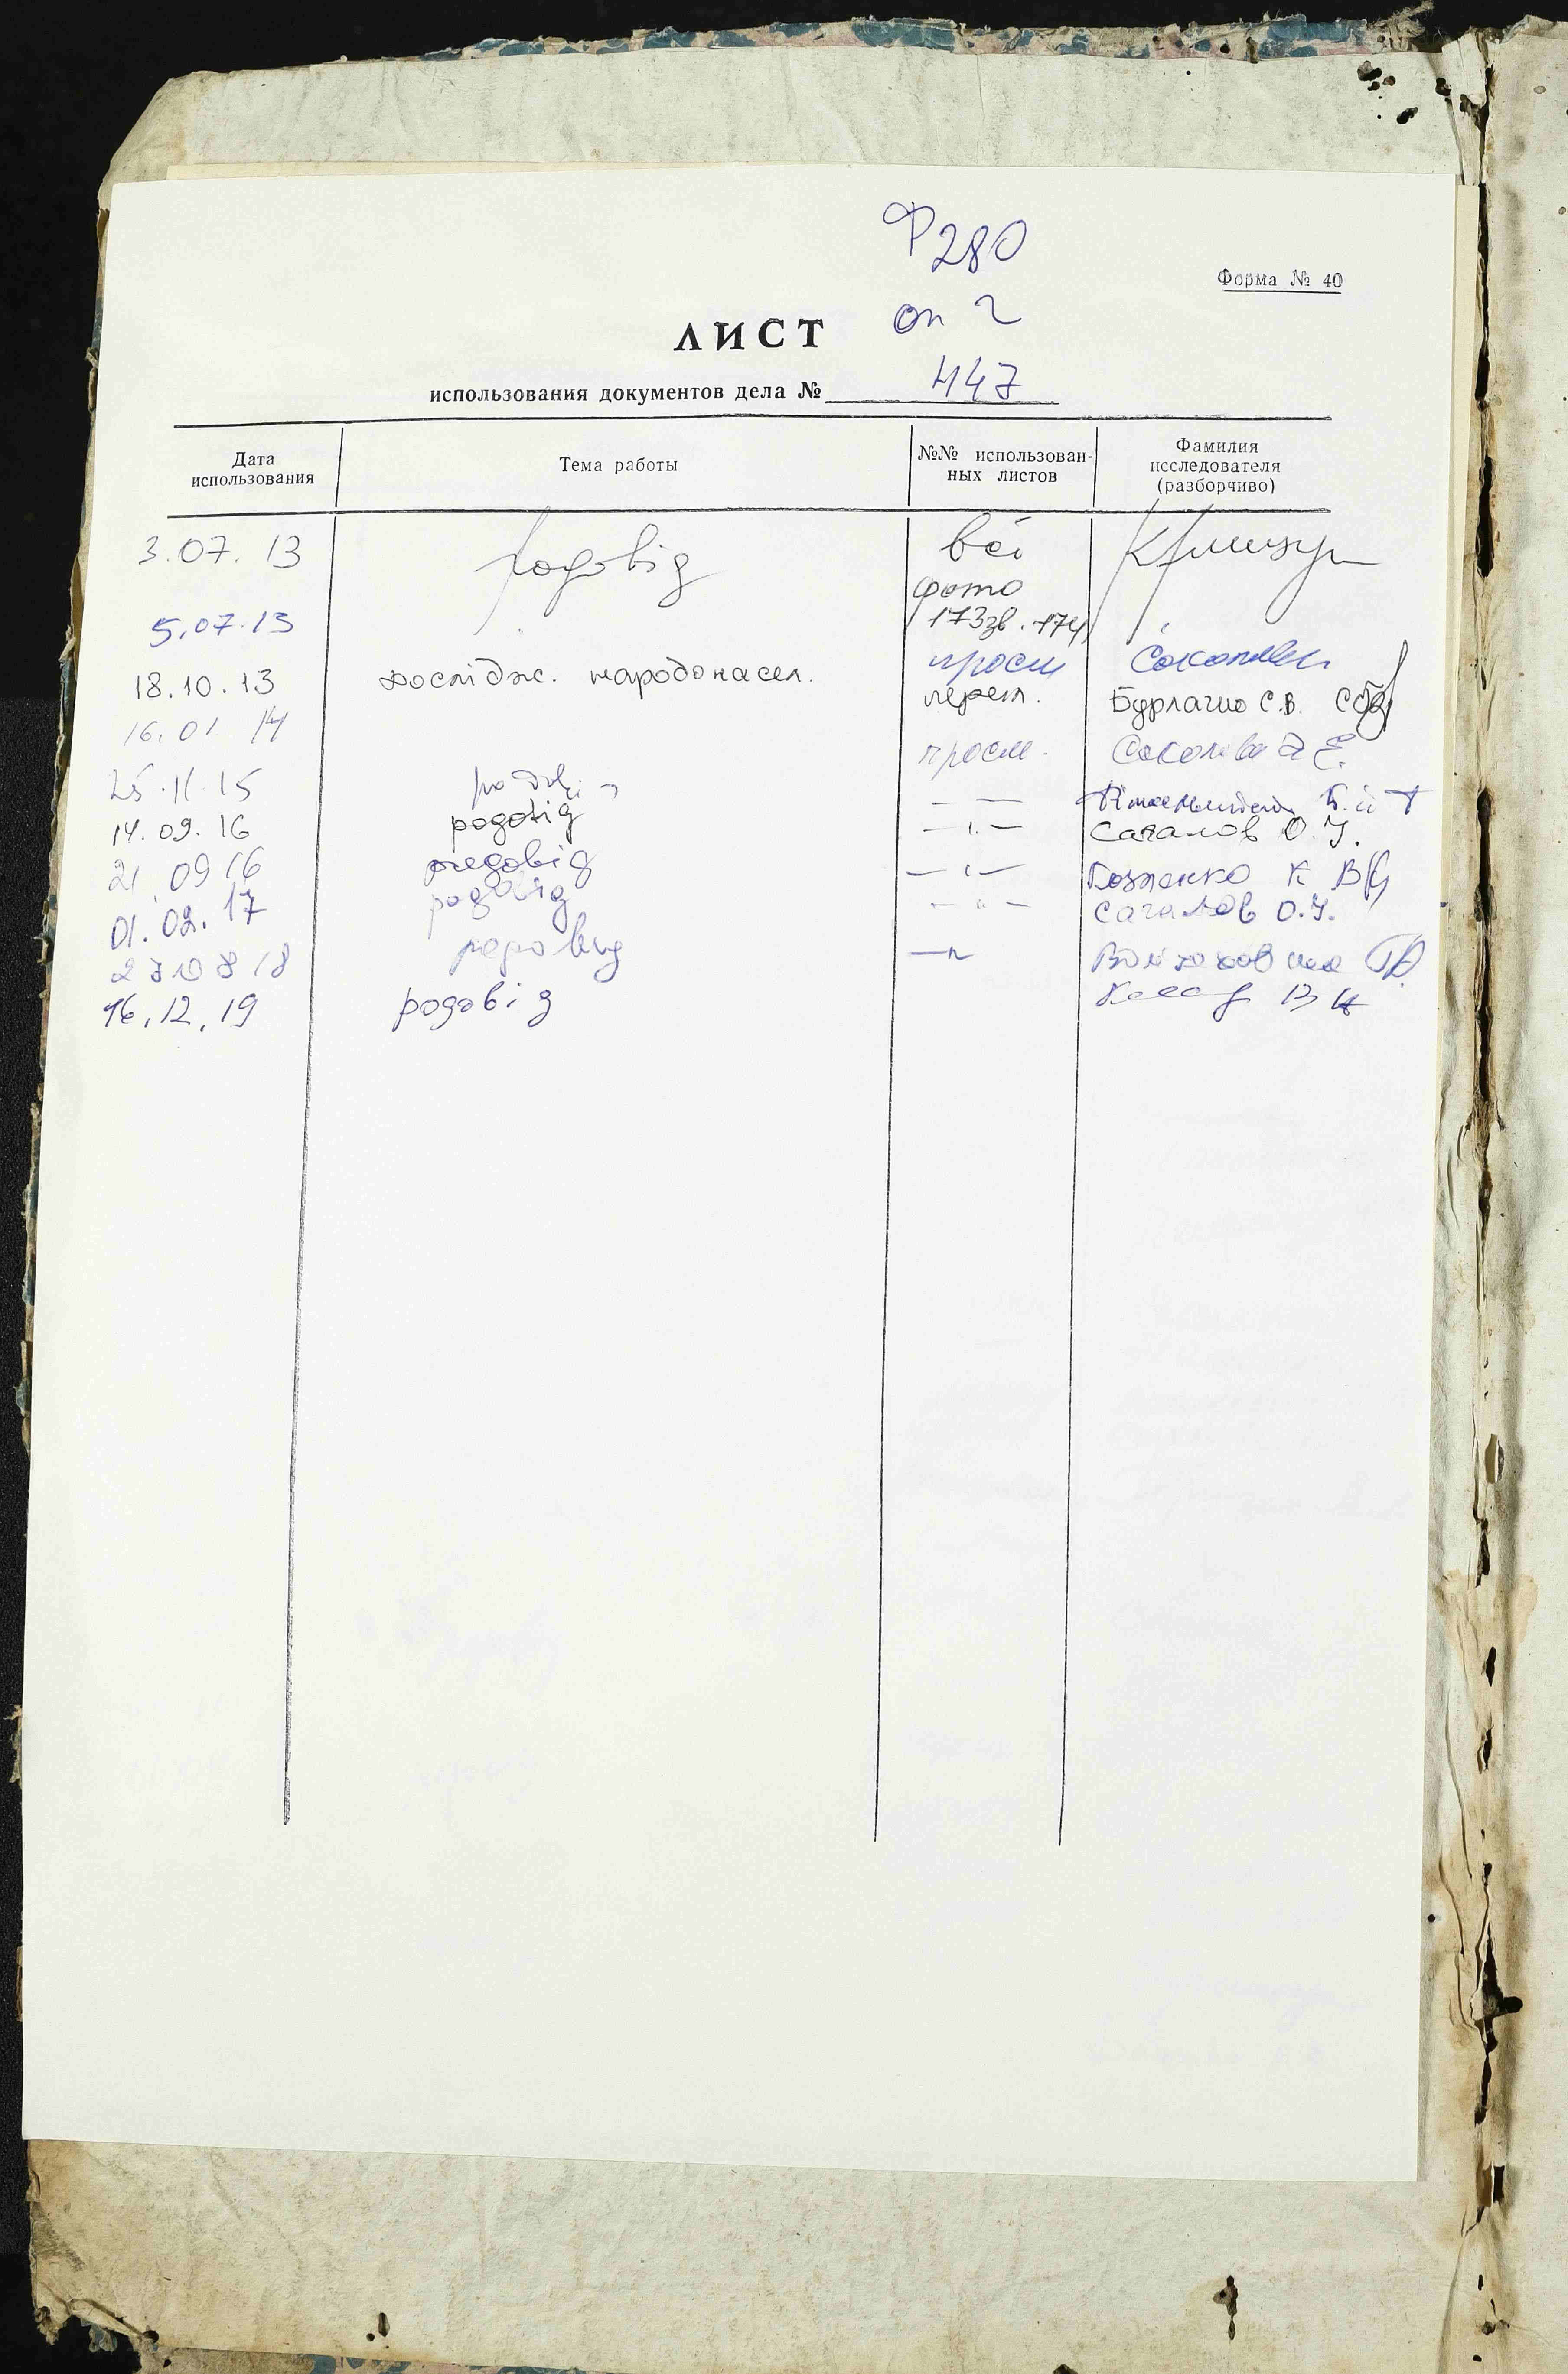 Ф 280
Форма № 40
оп 2
ЛИСТ
использования документов дела № 447
Дата использования Тема работы №№ использован-ных листов Фамилия исследователя (разборчиво)
3.07.13 родовід всі
фото
5.07.13 173зв. 174
просм
18.10.13 дослідж. народонасел. перегл. Бурлачко С.В.
16.01.14 просм. Соколова Е.
25.11.15 — —
14.09.16 родовід —"— Сагалов О.У.
21 09 16 родовід —"— К В
01.02.17 родовід —"— Сагалов О.У.
27 08 18 родовид —"
16.12.19 родовід